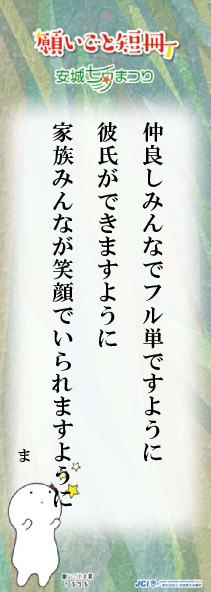 願いごと短冊
安城七夕まつり
仲良しみんなでフル単ですように
彼氏ができますように
家族みんなが笑顔でいられますように
ま
JCI